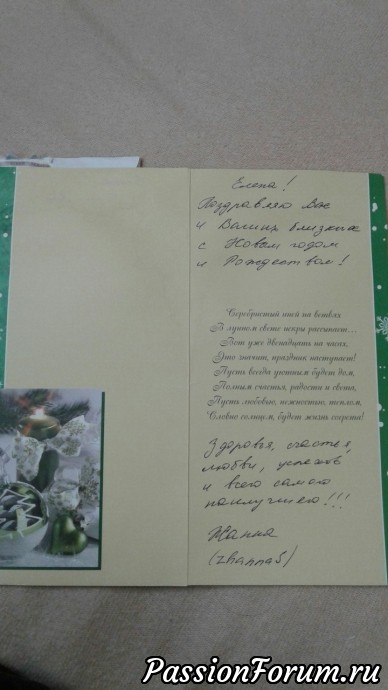 Елена!
Поздравляю Вас
и Ваших близких
с Новым годом
и Рождеством!
Серебристый иней на ветвях
В лунном свете искры рассыпает...
Вот уже двенадцать на часах,
Это значит, праздник наступает!
Пусть всегда уютным будет дом,
Полным счастья, радости и света,
Пусть любовью, нежностью, теплом,
Словно солнцем, будет жизнь согрета!
Здоровья, счастья,
любви, успехов
и всего самого
наилучшего!!!
Жанна
(zhannaS)
PassionForum.ru